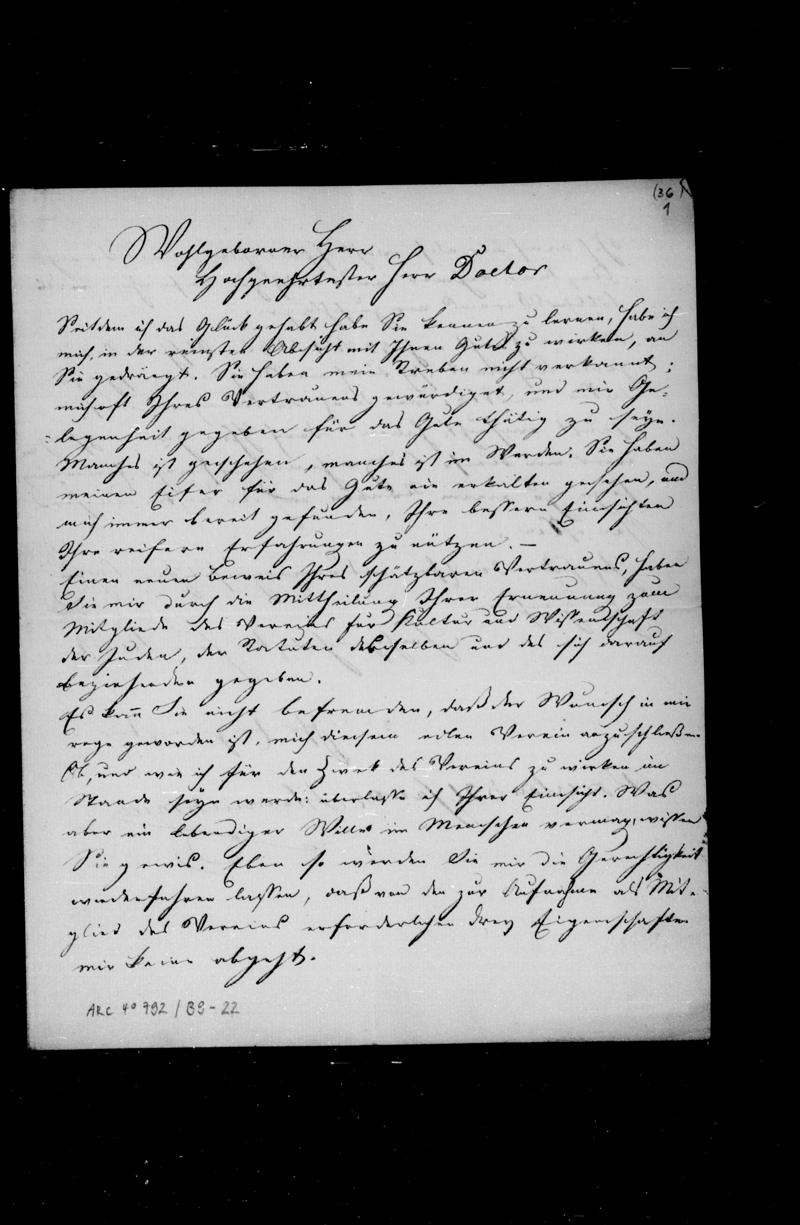 (36
1
Wohlgeborner Herr
Hochgeehrtester Herr Doctor
Seitdem ich das Glück gehabt habe Sie kennen zu lernen, habe ich
mich, in der reinsten Absicht mit Ihnen Gutes zu wirken, an
Sie gedrängt. Sie haben mein Streben nicht verkannt;
mich oft Ihres Vertrauens gewürdiget, und mir Ge-
legenheit gegeben für das Gute thätig zu seyn.
Manches ist geschehen, manches ist im Werden. Sie haben
meinen Eifer für das Gute nie erkalten gesehen, und
mich immer bereit gefunden, Ihre bessern Einsichten
Ihre reifern Erfahrungen zu nützen. —
Einen neuen Beweis Ihres schätzbaren Vertrauens, haben
Sie mir durch die Mittheilung Ihrer Ernennung zum
Mitgliede des Vereins für Kultur und Wissenschaft
der Juden, der Statuten desselben und des sich darauf
beziehenden gegeben.
Es kann Sie nicht befremden, daß der Wunsch in mir
rege geworden ist, mich diesem edlen Verein anzuschließen
Ob, und wie ich für den Zwek des Vereins zu wirken im
Stande seyn werde: überlasse ich Ihrer Einsicht. Was
aber ein lebendiger Wille im Menschen vermag, wissen
Sie gewis. Eben so werden Sie mir die Gerechtigkeit
wiederfahren lassen, daß von den zur Aufnahme als Mit-
glied des Vereins erforderlichen drey Eigenschaften
mir keine abgeht.
ARC 4° 792 / B9-22